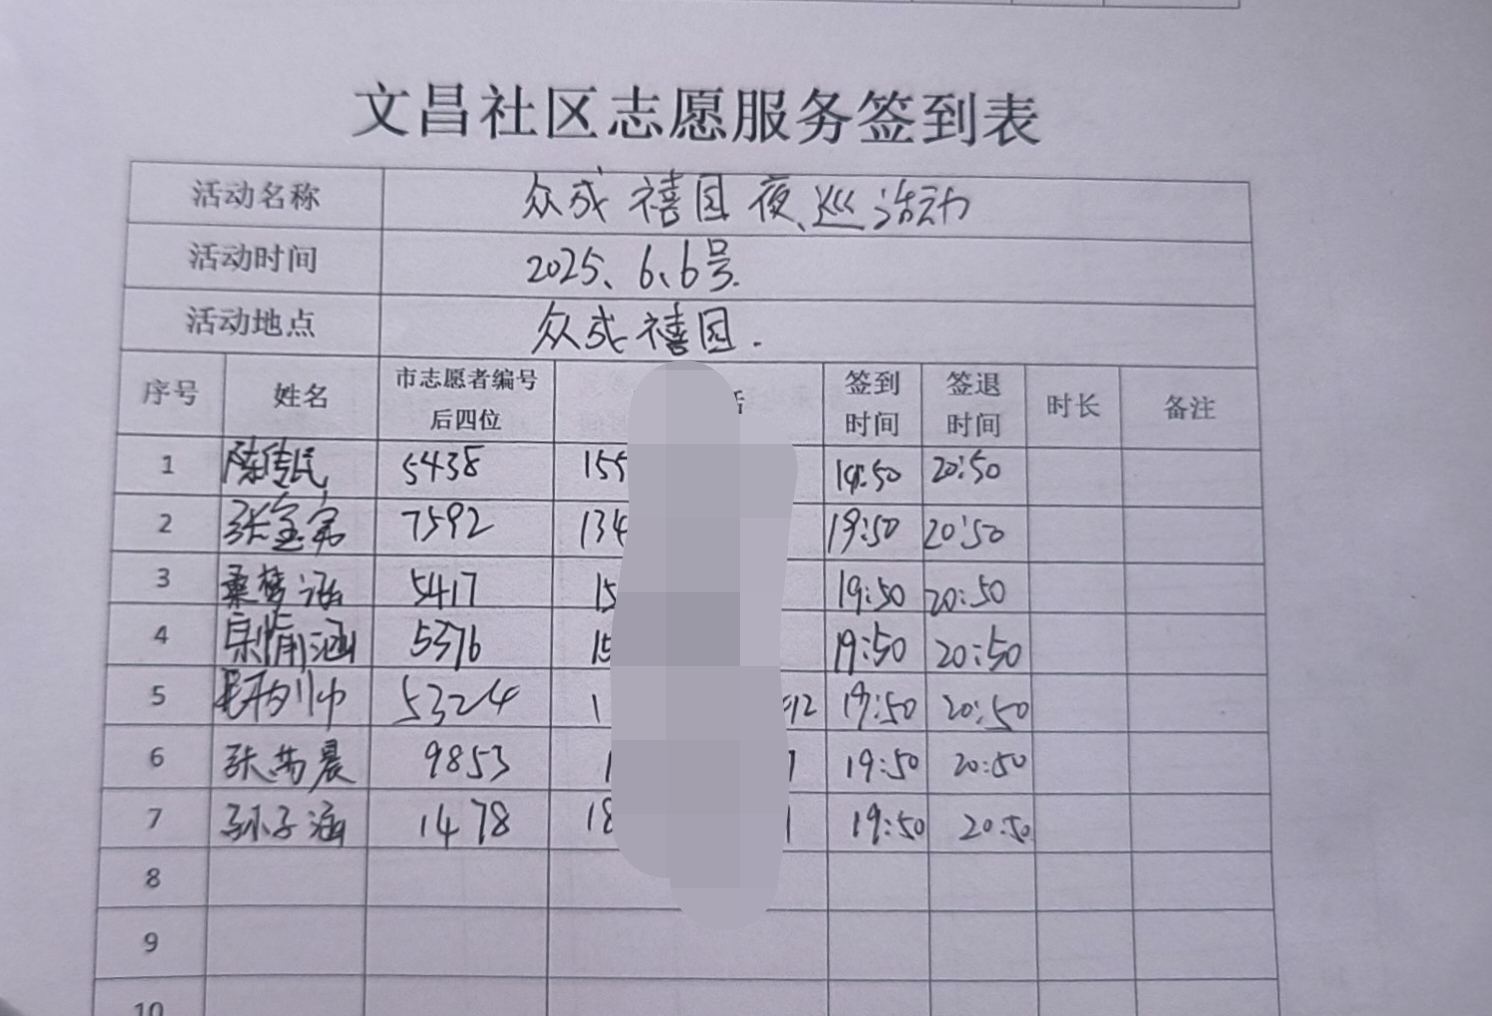 文昌社区志愿服务签到表
活动名称 众成禧园夜巡活动
活动时间 2025、6、6号.
活动地点 众成禧园.
序号 姓名 市志愿者编号后四位 话 签到时间 签退时间 时长 备注
1 陈传民 5438 155 19:50 20:50
2 张宝寓 7592 134 19:50 20:50
3 桑梦涵 5417 15 19:50 20:50
4 宗情涵 5376 15 19:50 20:50
5 5324 1 12 19:50 20:50
6 张芮晨 9853 1 19:50 20:50
7 孙子涵 1478 18 1 19:50 20:50
8
9
10